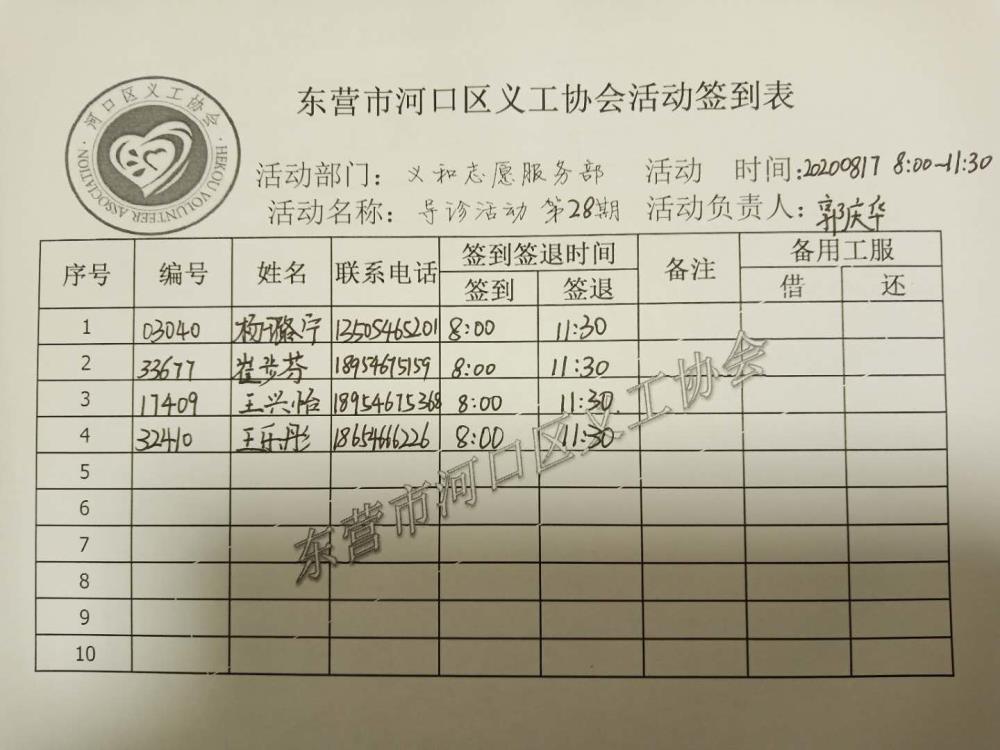 河口区义工协会
HEKOU VOLUNTEER ASSOCIATION
东营市河口区义工协会活动签到表
活动部门：义和志愿服务部 活动 时间：20200817 8:00-11:30
活动名称：导诊活动 第28期 活动负责人：郭庆华
序号 编号 姓名 联系电话 签到签退时间 备注 备用工服
签到 签退 借 还
1 03040 杨璐宁 13505465201 8:00 11:30
2 33677 崔步芬 18954675159 8:00 11:30
3 17409 王兴怡 18954675368 8:00 11:30
4 32410 王乐彤 18654666226 8:00 11:30
5
6
7
8
9
10
东营市河口区义工协会